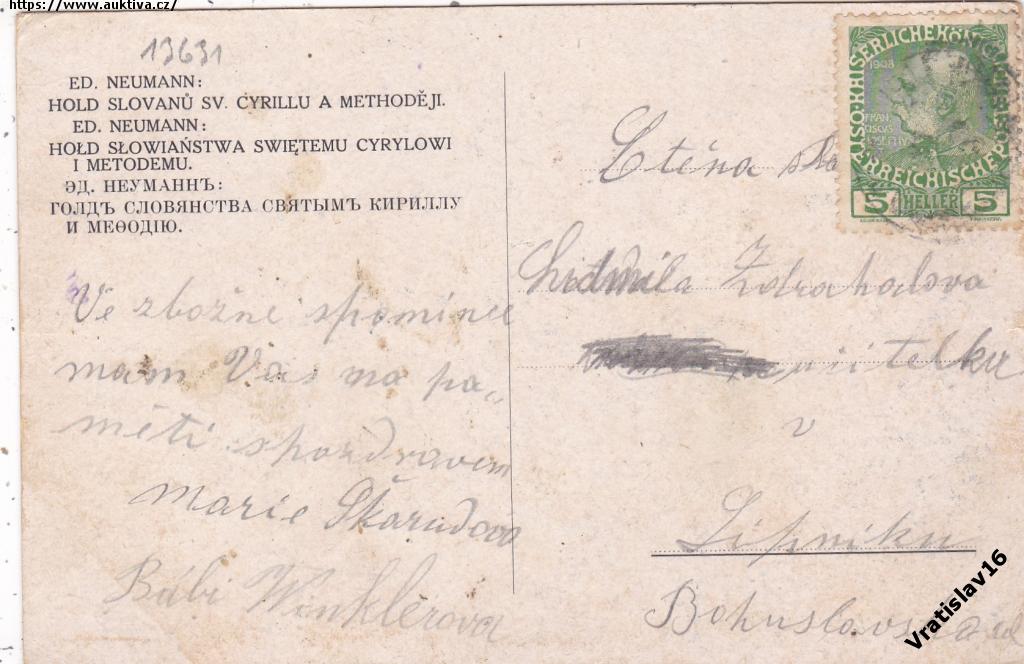 https://www.auktiva.cz/
13631
ED. NEUMANN:
HOLD SLOVANŮ SV. CYRILLU A METHODĚJI.
ED. NEUMANN:
HOŁD SŁOWIAŃSTWA SWIĘTEMU CYRYLOWI
I METODEMU.
ЭД. НЕУМАННЪ:
ГОЛДЪ СЛОВЯНСТВА СВЯТЫМЪ КИРИЛЛУ
И МЕѲОДІЮ.
Ve zbožné spomínce
mám Vás na pa„
měti spozdravem
Marie Škarudova
Bábi Winklerova
KAISERLICHE KÖNIGLICHE
ÖSTERREICHISCHE POST
1908
FRAN
CISCVS
IOSEPH I
5 HELLER 5
Ctěna
Ludmila Zdrahalova
učitelka
v
Lipniku
Vratislav16